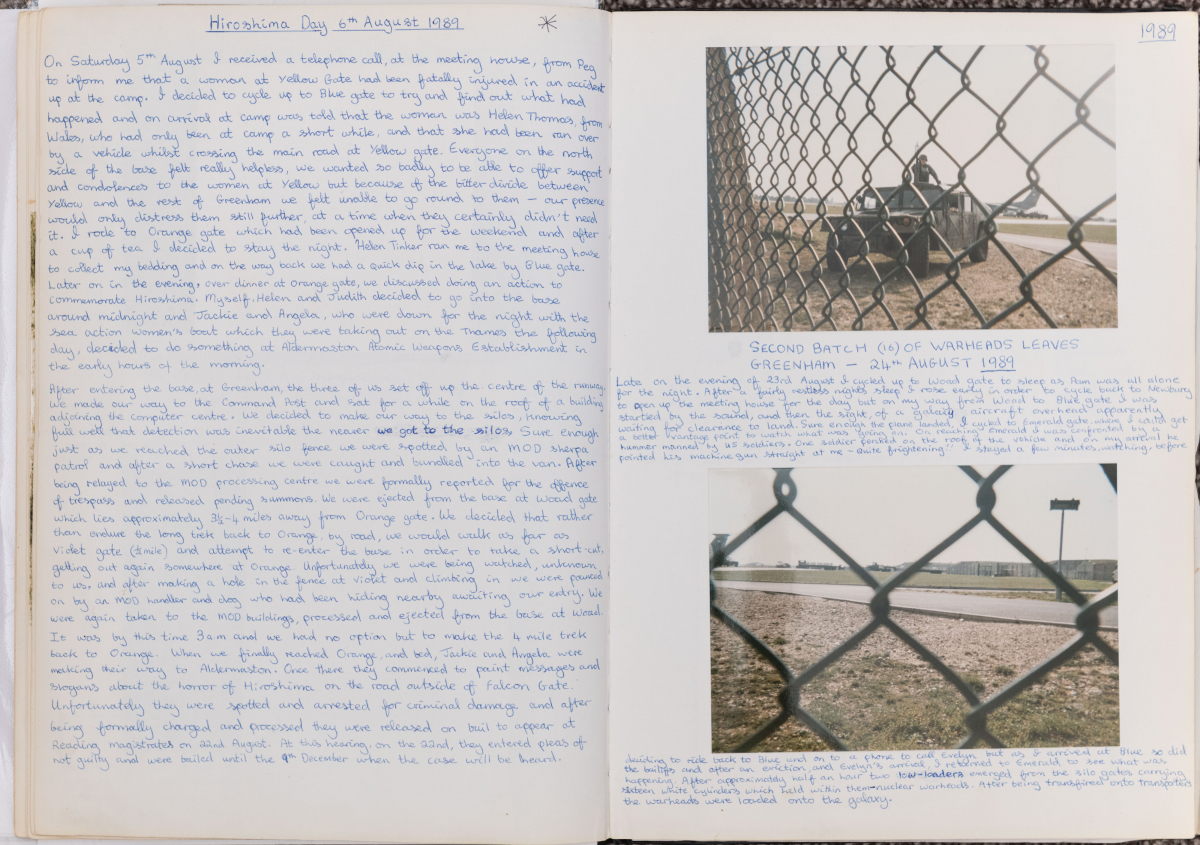 Hiroshima Day 6th August 1989 *
On Saturday 5th August I received a telephone call, at the meeting house, from Peg
to inform me that a woman at Yellow Gate had been fatally injured in an accident
up at the camp. I decided to cycle up to Blue gate to try and find out what had
happened and on arrival at camp was told that the woman was Helen Thomas, from
Wales, who had only been at camp a short while, and that she had been ran over
by a vehicle whilst crossing the main road at Yellow gate. Everyone on the north
side of the base felt really helpless, we wanted so badly to be able to offer support
and condolences to the women at Yellow but because of the bitter divide between
Yellow and the rest of Greenham we felt unable to go round to them – our presence
would only distress them still further, at a time when they certainly didn't need
it. I rode to Orange gate which had been opened up for the weekend and, after
a cup of tea I decided to stay the night. Helen Tinker ran me to the meeting house
to collect my bedding and on the way back we had a quick dip in the lake by Blue gate.
Later on in the evening, over dinner at Orange gate, we discussed doing an action to
commemorate Hiroshima. Myself, Helen and Judith decided to go into the base
around midnight and Jackie and Angela, who were down for the night with the
sea action women's boat which they were taking out on the Thames the following
day, decided to do something at Aldermaston Atomic Weapons Establishment in
the early hours of the morning.
After entering the base, at Greenham, the three of us set off up the centre of the runway.
We made our way to the Command Post and sat for a while on the roof of a building
adjoining the computer centre. We decided to make our way to the silos, knowing
full well that detection was inevitable the nearer we got to the silos. Sure enough
just as we reached the outer silo fence we were spotted by an MOD sherpa
patrol and after a short chase we were caught and bundled into the van. After
being relayed to the MOD processing centre we were formally reported for the offence
of trespass and released pending summons. We were ejected from the base at Woad gate
which lies approximately 3½-4 miles away from Orange gate. We decided that rather
than endure the long trek back to Orange, by road, we would walk as far as
Violet gate (½mile) and attempt to re-enter the base in order to take a short-cut,
getting out again somewhere at Orange. Unfortunately we were being watched, unknown
to us, and after making a hole in the fence at Violet and climbing in we were pounced
on by an MOD handler and dog who had been hiding nearby awaiting our entry. We
were again taken to the MOD buildings, processed and ejected from the base at Woad.
It was by this time 3am and we had no option but to make the 4 mile trek
back to Orange. When we finally reached Orange, and bed, Jackie and Angela were
making their way to Aldermaston. Once there they commenced to paint messages and
slogans about the horror of Hiroshima on the road outside of Falcon Gate.
Unfortunately they were spotted and arrested for criminal damage and after
being formally charged and processed they were released on bail to appear at
Reading magistrates on 22nd August. At this hearing, on the 22nd, they entered pleas of
not guilty and were bailed until the 9th December when the case will be heard.
1989
SECOND BATCH (16) OF WARHEADS LEAVES
GREENHAM – 24th AUGUST 1989
Late on the evening of 23rd August I cycled up to Woad gate to sleep as Pam was all alone
for the night. After a fairly restless nights sleep I rose early in order to cycle back to Newbury
to open up the meeting house for the day but on my way from Woad to Blue gate I was
startled by the sound, and then the sight, of a galaxy aircraft overhead apparently
waiting for clearance to land. Sure enough the plane landed, I cycled to Emerald gate where I could get
a better vantage point to watch what was going on. On reaching Emerald I was confronted by a
hummer manned by US soldiers. One soldier perched on the roof of the vehicle and on my arrival he
pointed his machine gun straight at me – quite frightening. I stayed a few minutes, watching, before
deciding to ride back to Blue and on to a phone to call Evelyn but as I arrived at Blue so did
the bailiffs and after an eviction, and Evelyn's arrival, I returned to Emerald to see what was
happening. After approximately half an hour two low-loaders emerged from the silo gates carrying
sixteen white cylinders which held within them nuclear warheads. After being transferred onto transporters
the warheads were loaded onto the galaxy.